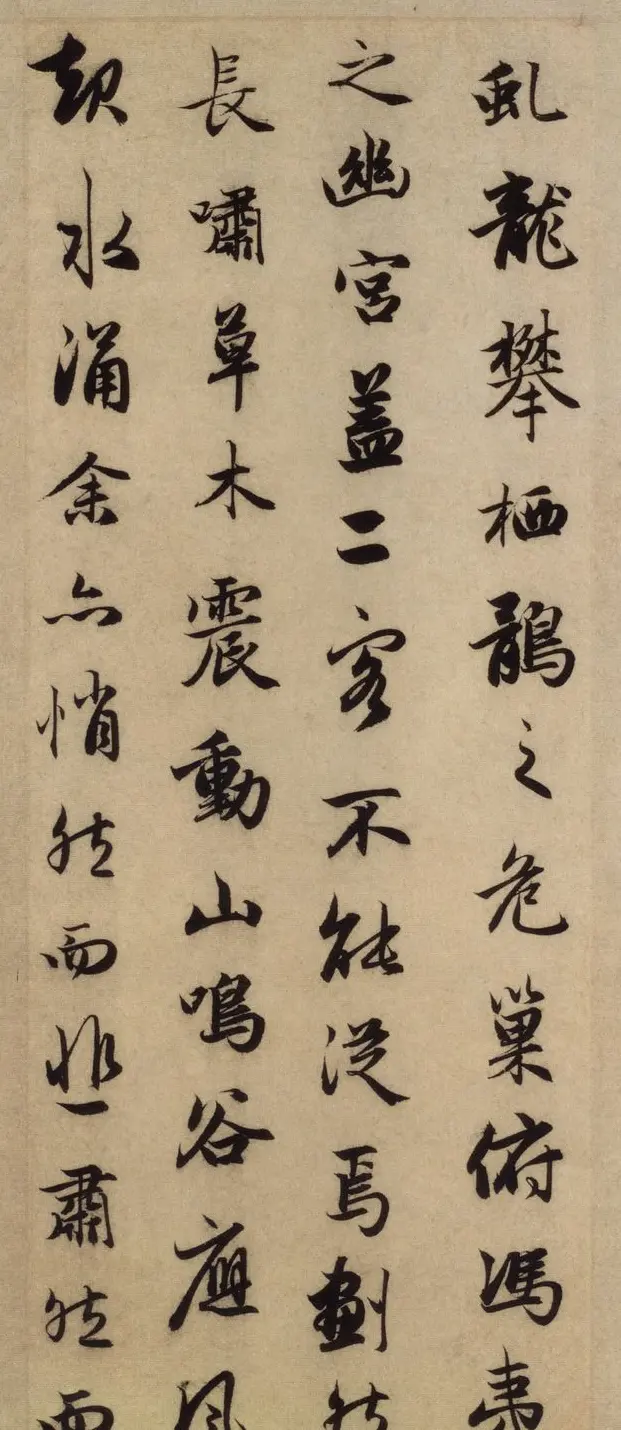 虬龍攀栖鶻之危巢俯馮夷
之幽宮蓋二客不能從焉劃然
長嘯草木震動山鳴谷應風
起水涌余亦悄然而悲肅然而